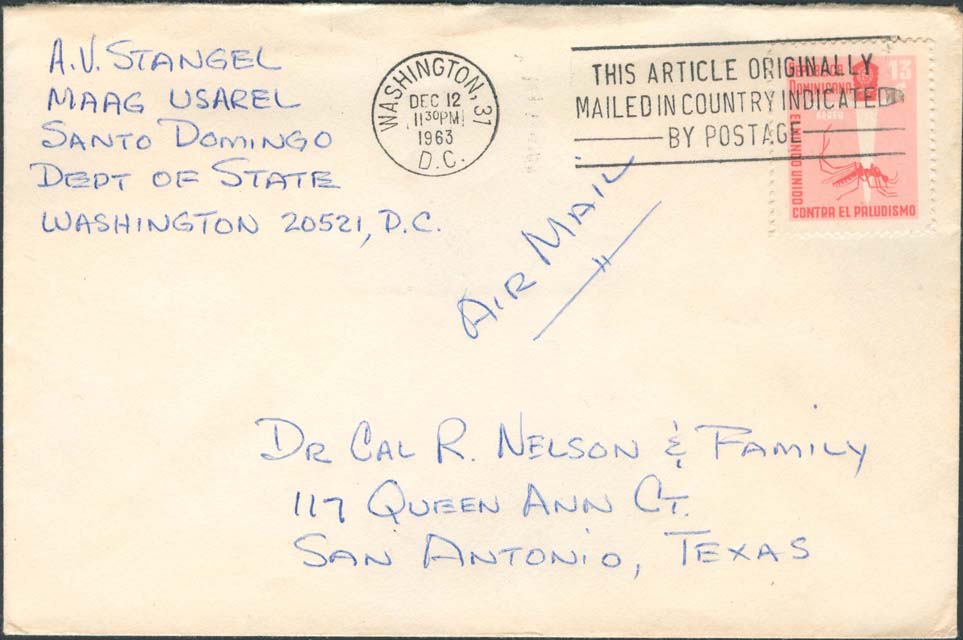 A.V. STANGEL
MAAG USAREL
SANTO DOMINGO
DEPT OF STATE
WASHINGTON 20521, D.C.
WASHINGTON, 31
DEC 12
11 30 PM
1963
D.C.
THIS ARTICLE ORIGINALLY
MAILED IN COUNTRY INDICATED
BY POSTAGE
REPUBLICA
DOMINICANA
13
AEREO
EL MUNDO UNIDO
CONTRA EL PALUDISMO
AIR MAIL
DR CAL R. NELSON & FAMILY
117 QUEEN ANN CT.
SAN ANTONIO, TEXAS